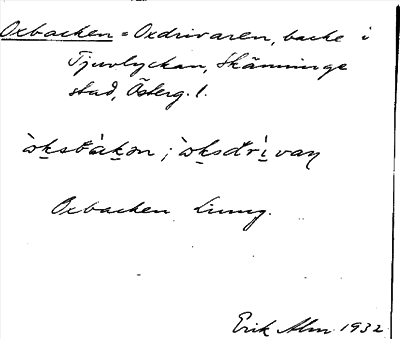 Oxbacken = Oxdrivaren, backe i
Tjuvlyckan, Skänninge
stad, Österg. l.
òksbàkən ; òksdrìvaṇ
Oxbacken Ljung.
Erik Alm 1932